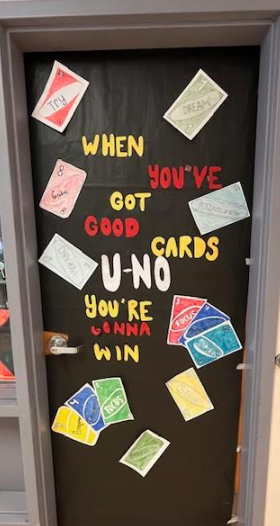 TRY
DREAM
WHEN
YOU'VE
GOT
GOOD
CARDS
U-NO
YOU'RE
GONNA
WIN
FOCUS
FOCUS